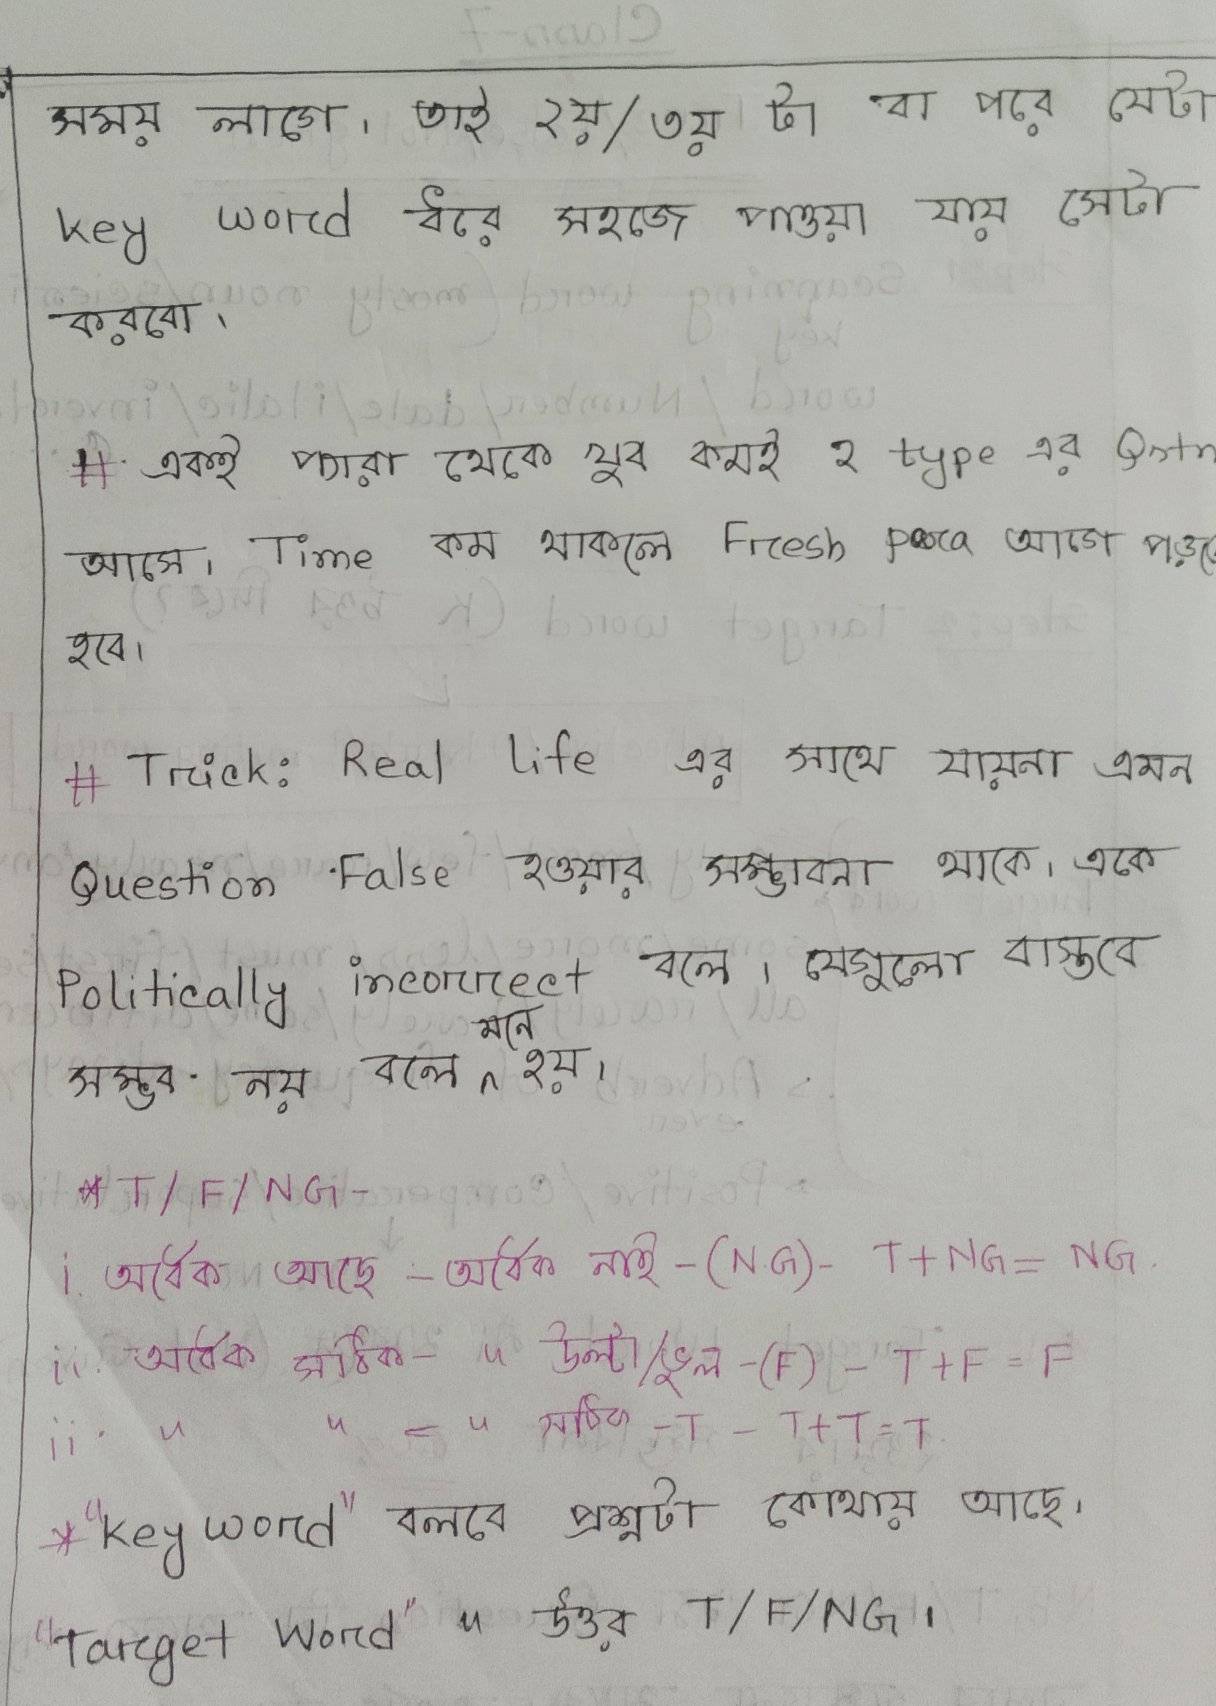 সময় লাগে। তাই ২য়/৩য় টা বা পরে যেটা
key word ধরে সহজে পাওয়া যায় সেটা
করবো।
# একই প্যারা থেকে খুব কমই ২ type এর Qnstn
আসে। Time কম থাকলে Fresh para আগে পড়তে
হবে।
# Trick: Real life এর সাথে যায়না এমন
Question False হওয়ার সম্ভাবনা থাকে। একে
Politically incorrect বলে। যেগুলো বাস্তবে
সম্ভব নয় বলে মনে হয়।
* T/F/NG -
i. অর্ধেক আছে - অর্ধেক নাই - (NG) - T+NG = NG.
ii. অর্ধেক সঠিক - " উল্টা/ভুল - (F) - T+F = F
ii. " " = " সঠিক - T - T+T=T
* "key word" বলবে প্রশ্নটা কোথায় আছে।
"Target Word" " উত্তর T/F/NG।